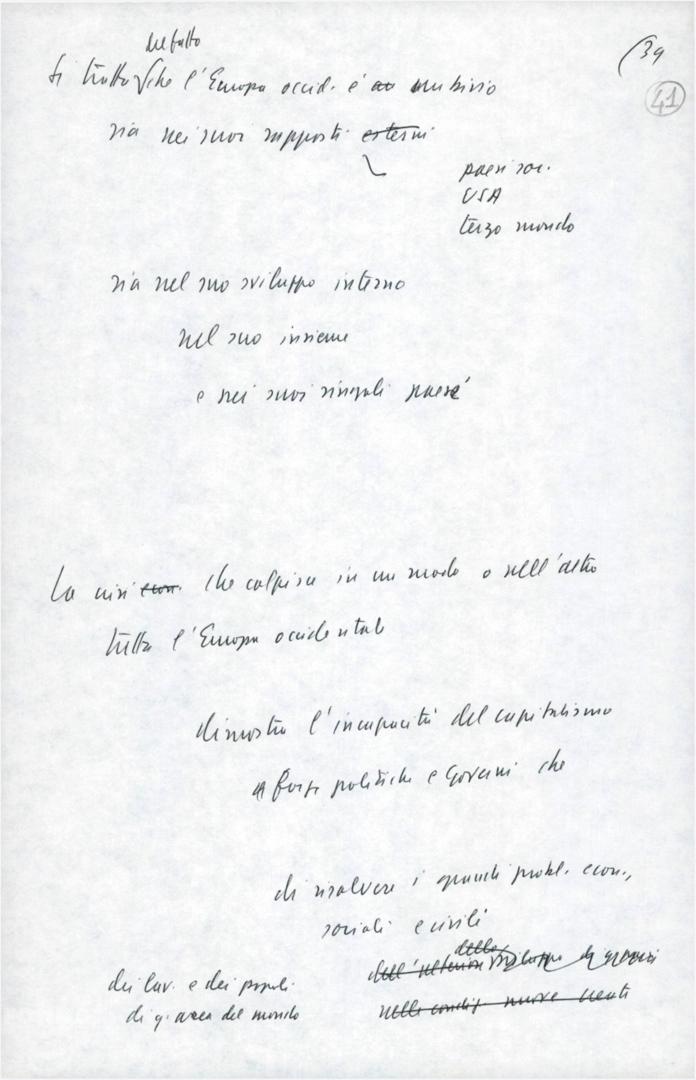 (39
41
del fatto
Si tratta che l'Europa occid. è a un bivio
sia nei suoi rapporti esterni
paesi soc.
USA
terzo mondo
sia nel suo sviluppo interno
nel suo insieme
e nei suoi singoli paesi
La crisi econ. che colpisce in un modo o nell'altro
tutta l'Europa occidentale
dimostra l'incapacità del capitalismo
forze politiche e governi che
di risolvere i grandi probl. econ.,
sociali e civili
dell'ulteriore dello sviluppo di
dei lav. e dei popoli
di q. area del mondo
nelle condiz. nuove create